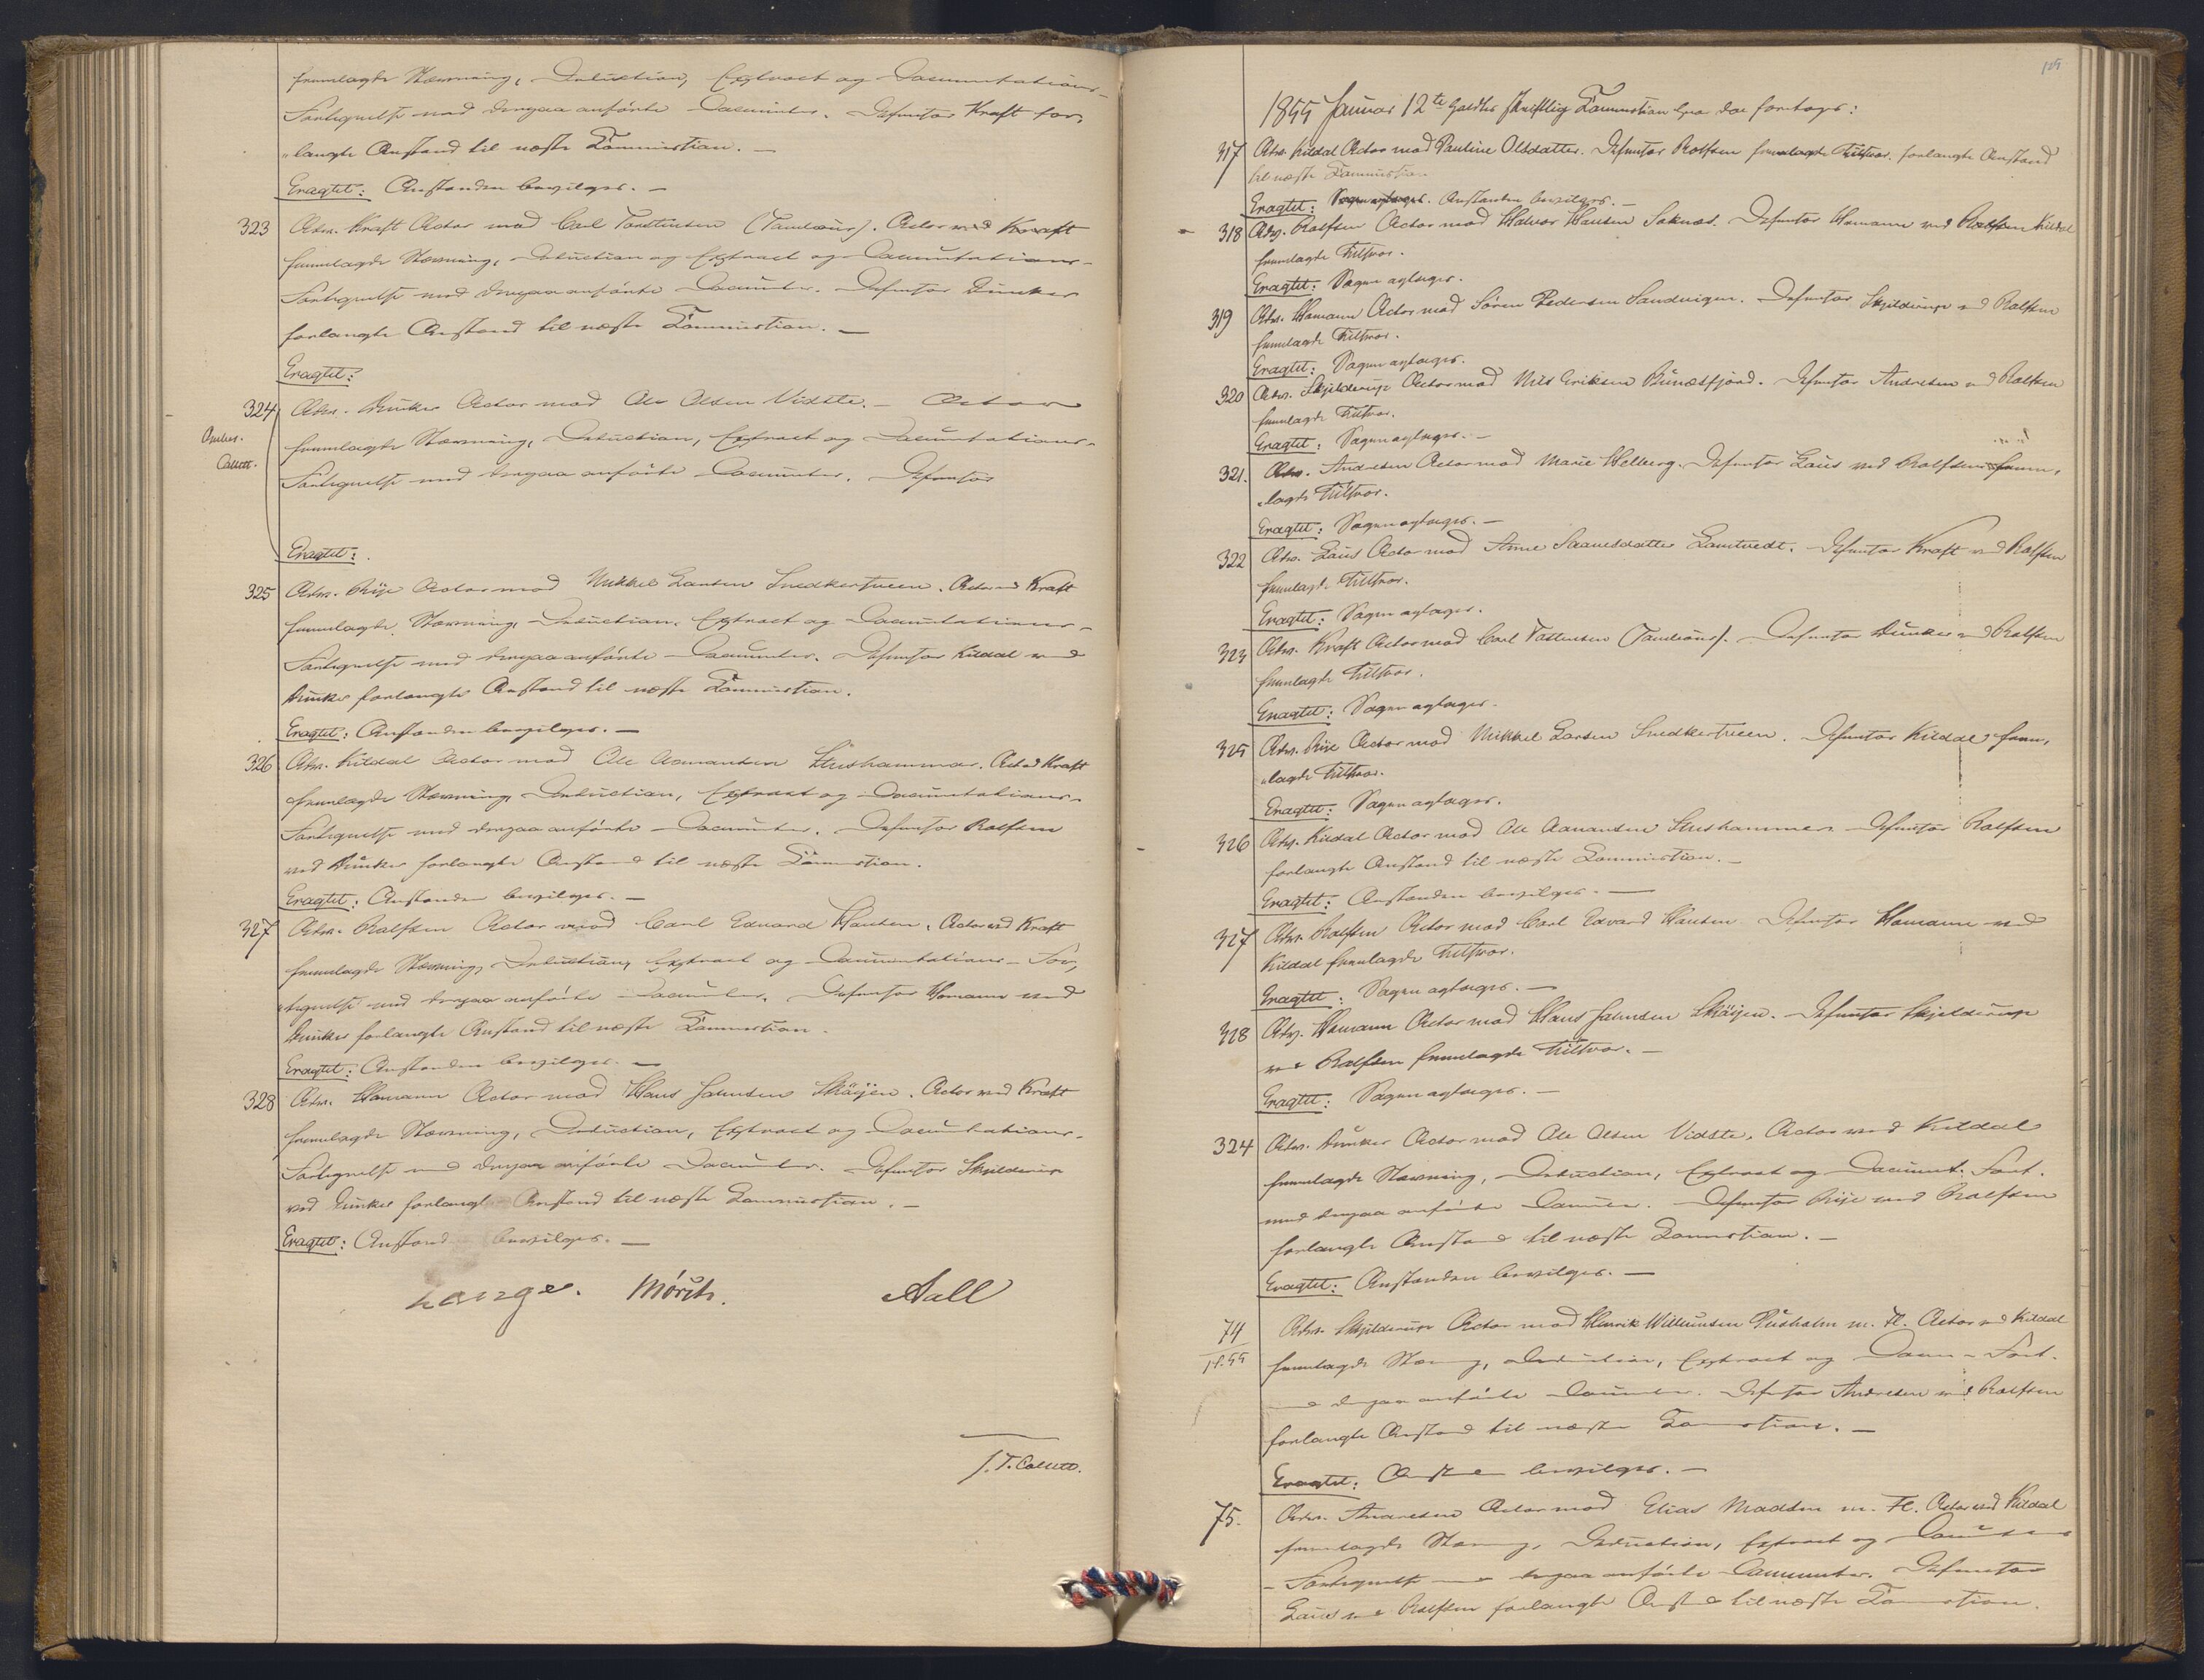 fremlagde Stævning, Deduction, Extract og Documentations-
Fortegnelse med derpaa anførte Documenter. Defensor Kraft for-
"langte Anstand til næste Session.
Eragtet: Anstanden bevilges. —
323 Adv. Kraft Actor mod Carl Torstensen (Tambour). Actor ved Kraft
fremlagde Stævning, Deduction og Extract og Documentations-
Fortegnelse med derpaa anførte Documenter. Defensor Dunker
forlangte Anstand til næste Session. —
Eragtet:
324 Adv. Dunker Actor mod Ole Olsen Vidste. — Actor
Collett.
fremlagde Stævning, Deduction, Extract og Documentations-
Fortegnelse med derpaa anførte Documenter. Defensor
Eragtet:
325 Adv. Rije Actor mod Mikkel Larsen Snedkertueen. Actor ved Kraft
fremlagde Stævning, Deduction, Extract og Documentations-
Fortegnelse med derpaa anførte Documenter. Defensor Kildal ved
Dunker forlangte Anstand til næste Session.
Eragtet: Anstanden bevilges. —
326 Adv. Kildal Actor mod Ole Aamandsen Stushammer. Actor ved Kraft
fremlagde Stævning, Deduction, Extract og Documentations-
Fortegnelse med derpaa anførte Documenter. Defensor Rolfsen
ved Dunker forlangte Anstand til næste Session.
Eragtet: Anstanden bevilges. —
327 Adv. Rolfsen Actor mod Carl Edvard Hansen. Actor ved Kraft
fremlagde Stævning, Deduction, Extract og Documentations-For-
"tegnelse med derpaa anførte Documenter. Defensor Homann ved
Dunker forlangte Anstand til næste Session.
Eragtet: Anstanden bevilges. —
328 Adv. Homann Actor mod Hans Johnsen Skøijen. Actor ved Kraft
fremlagde Stævning, Deduction, Extract og Documentations-
Fortegnelse med derpaa anførte Documenter. Defensor Skjelderup
ved Dunker forlangte Anstand til næste Session. —
Eragtet: Anstanden bevilges. —
Lange. Mørch. Aall
J. T. Collett.
125
1855 Januar 12te holdtes skriftlig Session hvor da foretoges:
317 Adv. Kildal Actor mod Pauline Olsdatter. Defensor Rolfsen fremlagde Tilsvar. forlangte Anstand
til næste Session
Eragtet: Sagen optages. Anstanden bevilges. —
318 Adv. Rolfsen Actor mod Halvor Hansen Saknæs. Defensor Homann ved Rolfsen Kildal
fremlagde Tilsvar.
Eragtet: Sagen optages.
319 Adv. Homann Actor mod Søren Pedersen Sandvigen. Defensor Skjelderup ved Rolfsen
fremlagde Tilsvar.
Eragtet: Sagen optages.
320 Adv. Skjelderup Actor mod Nils Eriksen Bunæsfjord. Defensor Andresen ved Rolfsen
fremlagde Tilsvar.
Eragtet: Sagen optages. —
321. Adv. Andresen Actor mod Marie Helberg. Defensor Laus ved Rolfsen frem-
"lagde Tilsvar.
Eragtet: Sagen optages. —
322 Adv. Laus Actor mod Anne Saamesdatter Lamtvedt. Defensor Kraft ved Rolfsen
fremlagd. Tilsvar.
Eragtet: Sagen optages.
323 Adv. Kraft Actor mod Carl Tostensen (Tambour). Defensor Dunker ved Rolfsen
fremlagde Tilsvar.
Eragtet: Sagen optages.
325 Adv. Rije Actor mod Mikkel Larsen Snedkertueen. Defensor Kildal frem-
"lagde Tilsvar.
Eragtet: Sagen optages.
326 Adv. Kildal Actor mod Ole Aamandsen Stushammer. Defensor Rolfsen
forlangte Anstand til næste Session. —
Eragtet: Anstanden bevilges. —
327 Adv. Rolfsen Actor mod Carl Edvard Hansen Defensor Homann ved
Kildal fremlagde Tilsvar.
Eragtet: Sagen optages. —
328 Adv. Homann Actor mod Hans Johnsen Skøijen. Defensor Skjelderup
ved Rolfsen fremlagde Tilsvar. —
Eragtet: Sagen optages. —
324 Adv. Dunker Actor mod Ole Olsen Vidste. Actor ved Kildal
fremlagde Stævning, Deduction, Extract og Document. Fort.
med derpaa anførte Docum. Defensor Rije ved Rolfsen
forlangte Anstand til næste Session. —
Eragtet: Anstanden bevilges. —
74/1855 Adv. Skjelderup Actor mod Henrik Willumsen Rusholm m. Fl. Actor ved Kildal
fremlagde Stævning, Deduction, Extract og Docum-Fort.
med derpaa anførte Documenter. Defensor Andresen ved Rolfsen
forlangte Anstand til næste Session. —
Eragtet: Anstanden bevilges. —
75. Adv. Andresen Actor mod Elias Madsen m. Fl. Actor ved Kildal
fremlagde Stævning, Deduction, Extract og Documentations
- Fortegnelse med derpaa anførte Documenter. Defensor
Laus ved Rolfsen forlangte Anstand til næste Session.